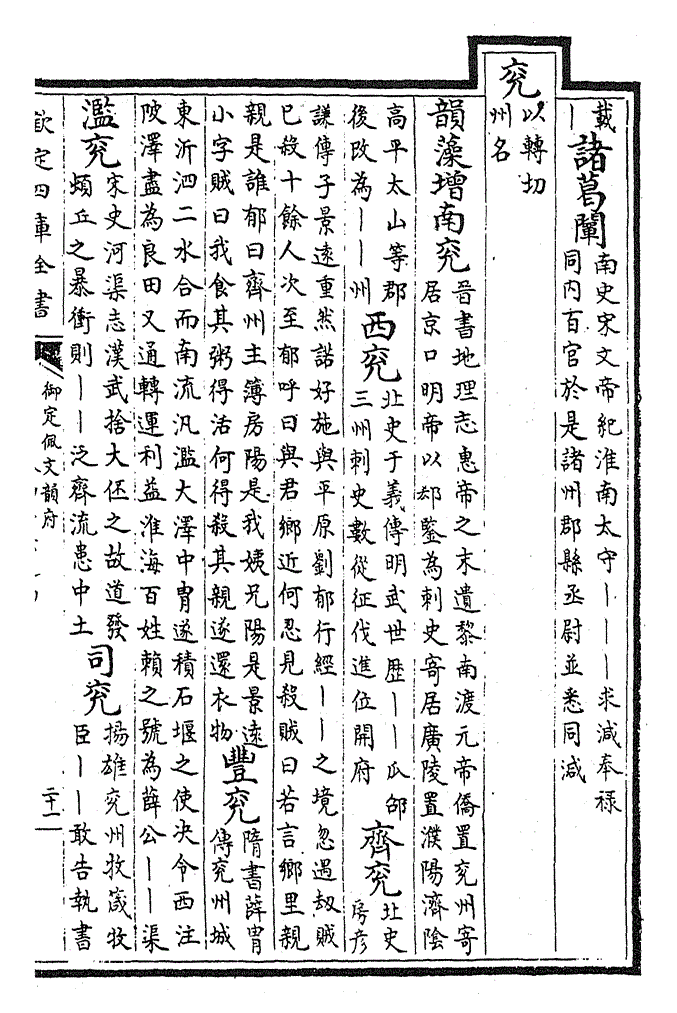 載
丨
諸葛闡
南史宋文帝紀淮南太守丨丨丨求減奉祿
同内百官於是諸州郡縣丞尉並悉同減
兖
以轉切
州名
韻藻增南兖
晉書地理志惠帝之末遺黎南渡元帝僑置兖州寄
居京口明帝以郄鑒為刺史寄居廣陵置濮陽濟陰
高平太山等郡
後改為丨丨州
西兖
北史于義傳明武世歴丨丨瓜邵
三州刺史數從征伐進位開府
齊兖
北史
房彦
謙傳子景遠重然諾好施與平原劉郁行經丨丨之境忽遇劫賊
已殺十餘人次至郁呼曰與君鄉近何忍見殺賊曰若言鄉里親
親是誰郁曰齊州主簿房陽是我姨兄陽是景逺
小字賊曰我食其粥得活何得殺其親遂還衣物
豐兖
隋書薛胄
傳兖州城
東沂泗二水合而南流汎濫大澤中胄遂積石堰之使决令西注
陂澤盡為良田又通轉運利益淮海百姓賴之號為薛公丨丨渠
濫兖
宋史河渠志漢武捨大伾之故道發
頓丘之暴衝則丨丨泛齊流患中土
司兖
揚雄兖州牧箴牧
臣丨丨敢告執書
欽定四庫全書
御定佩文韻府
二十一